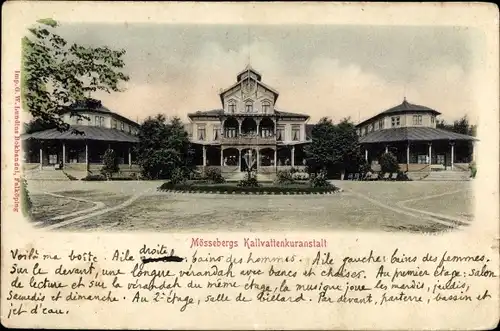 Imp. G. W. Lundins Bokhandel, Falköping
Mössebergs Kallvattenkuranstalt
Voilà ma boîte. Aile droite bains des hommes. Aile gauche: bains des femmes.
Sur le devant, une longue vérandah avec bancs et chaises. Au premier étage: salon
de lecture et sur la vérandah du même étage, la musique joue les mardis, jeudis,
Samedis et dimanche. Au 2e étage, salle de billard. Par devant, parterre, bassin et
jet d'eau.